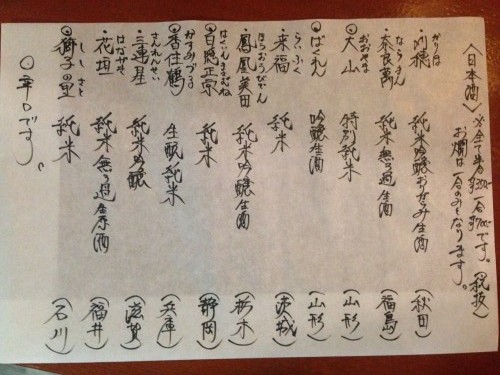 〈日本酒〉※全て半合¥350 一合¥700です。(税抜)
お燗は一合のみとなります。
かりほ
・刈穂 純米吟醸おりがらみ生酒 (秋田)
ならまん
・奈良萬 純米無ろ過生酒 (福島)
おおやま
◎大山 特別純米 (山形)
◎ばくれん 吟醸生酒 (山形)
らいふく
・来福 純米 (茨城)
ほうおうびでん
・鳳凰美田 純米吟醸生酒 (栃木)
はくいんまさむね
◎白隠正宗 純米 (静岡)
かすみづる
◎香住鶴 生酛純米 (兵庫)
さんれんせい
・三連星 純米吟醸 (滋賀)
はながき
・花垣 純米無ろ過生原酒 (福井)
ししのさと
◎獅子の里 純米 (石川)
◎辛口です。